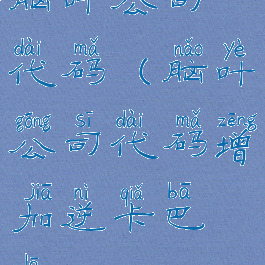 脑叶公司
dài mǎ nǎo yè
代码（脑叶
gōng sī dài mǎ zēng
公司代码增
jiā nì qiǎ bā
加逆卡巴